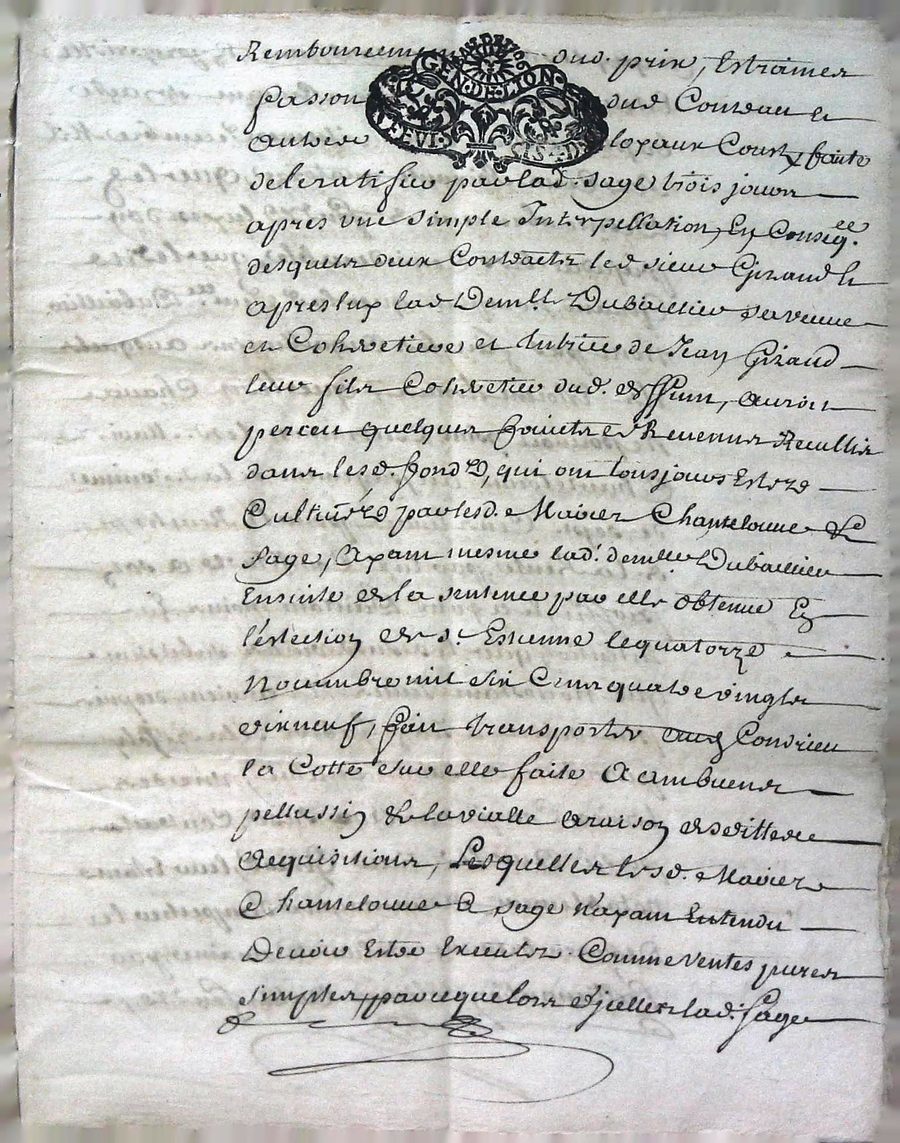 Remboursement dud. prix, Estraines
GEN·DE·LION·
fasson dud Couteau et
autres loyaux Coust faite
de la ratiffier par lad. Sage trois jours
apres une simple Interpellation, En Conseq.ce
desquels deux Contracts led sieur Giraud &
apres luy lad Dem.lle Dubaillier sa veuve
et Cohéretiere et tutrice de Jean Giraud
leur fils Coheretier dud. deffunt, auroit
perceu quelques fruicts & Revenus Recullis
dans lesd. fonds, qui ont tousjours Esté
Cultivés par lesd. Mavier Chantelouve &
Sage, ayant mesme lad. demlle Dubaillier
Ensuite de la sentence par elle obtenue En
l'eslection de St. Estienne le quatorze
Novembre mil six Cens quatre vingts
dix neuf, fait transporter aud Condrieu
la Cotte sur elle faite a ambuens
pellussin & la vialle a raison desdittes
acquisitions, Lesquelles lesd. Mavier
Chantelouve & Sage n'ayant Entendu
Devoir Estre Executés Comme ventes pures
simples, parce que lors d'jcelles lad. Sage